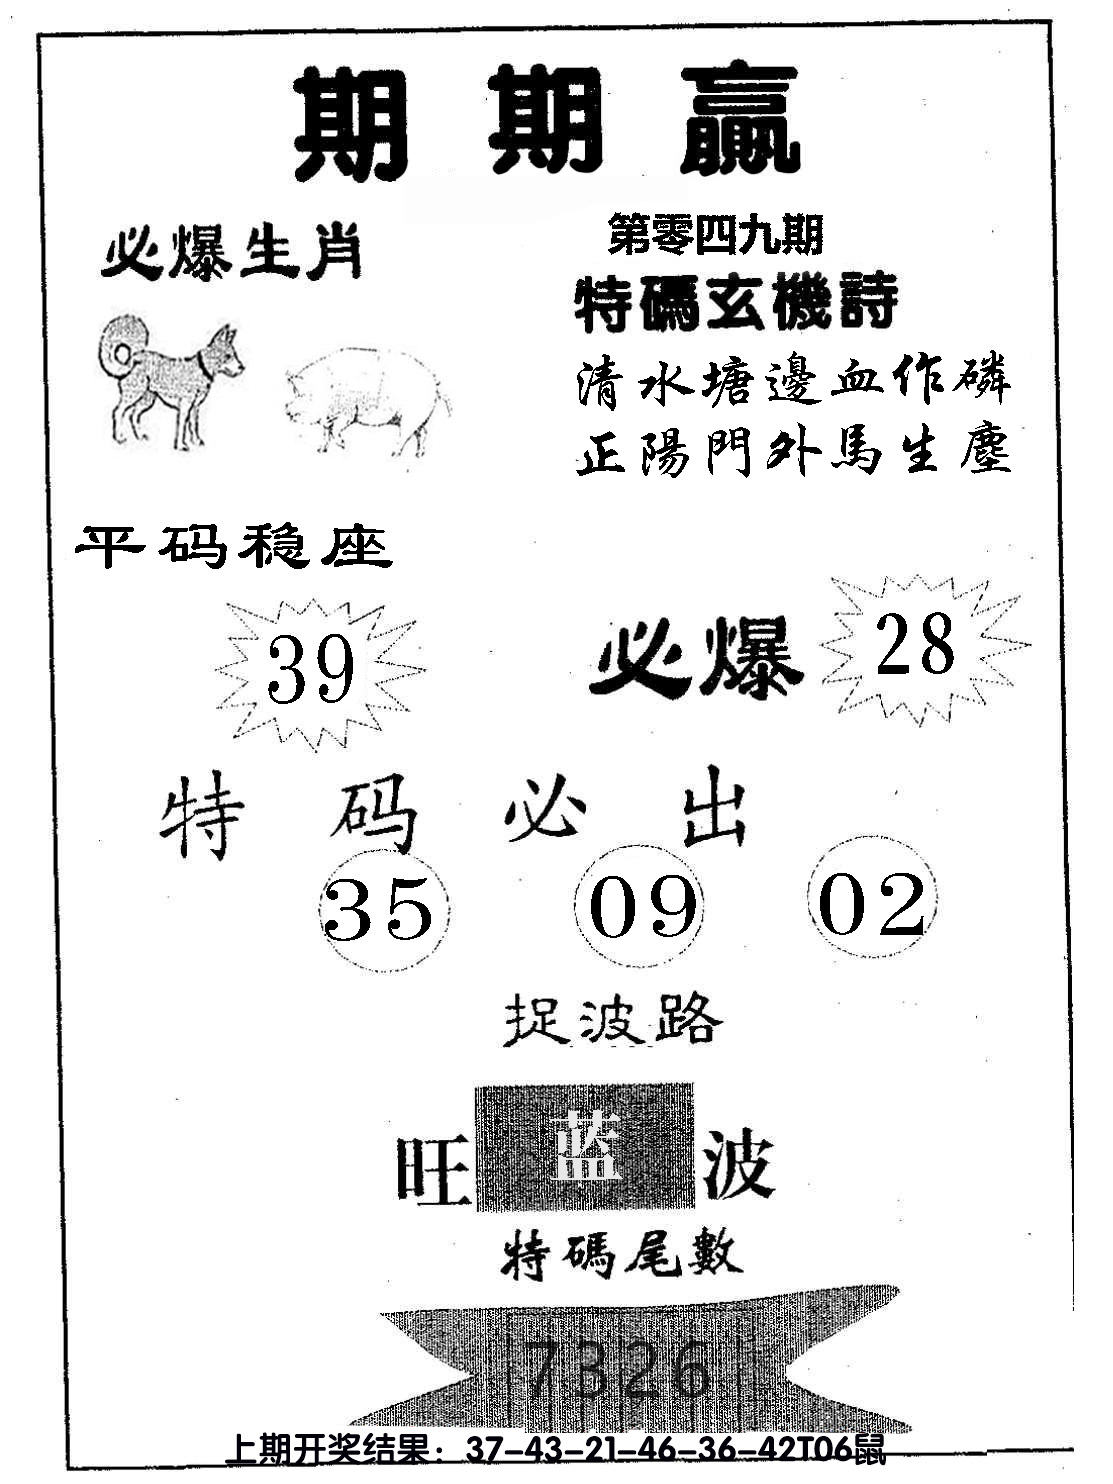 期期贏
必爆生肖
第零四九期
特碼玄機詩
清水塘邊血作磷
正陽門外馬生塵
平码稳座
39
必爆 28
特码必出
35 09 02
捉波路
旺蓝波
特碼尾數
7326
上期开奖结果：37-43-21-46-36-42T06鼠